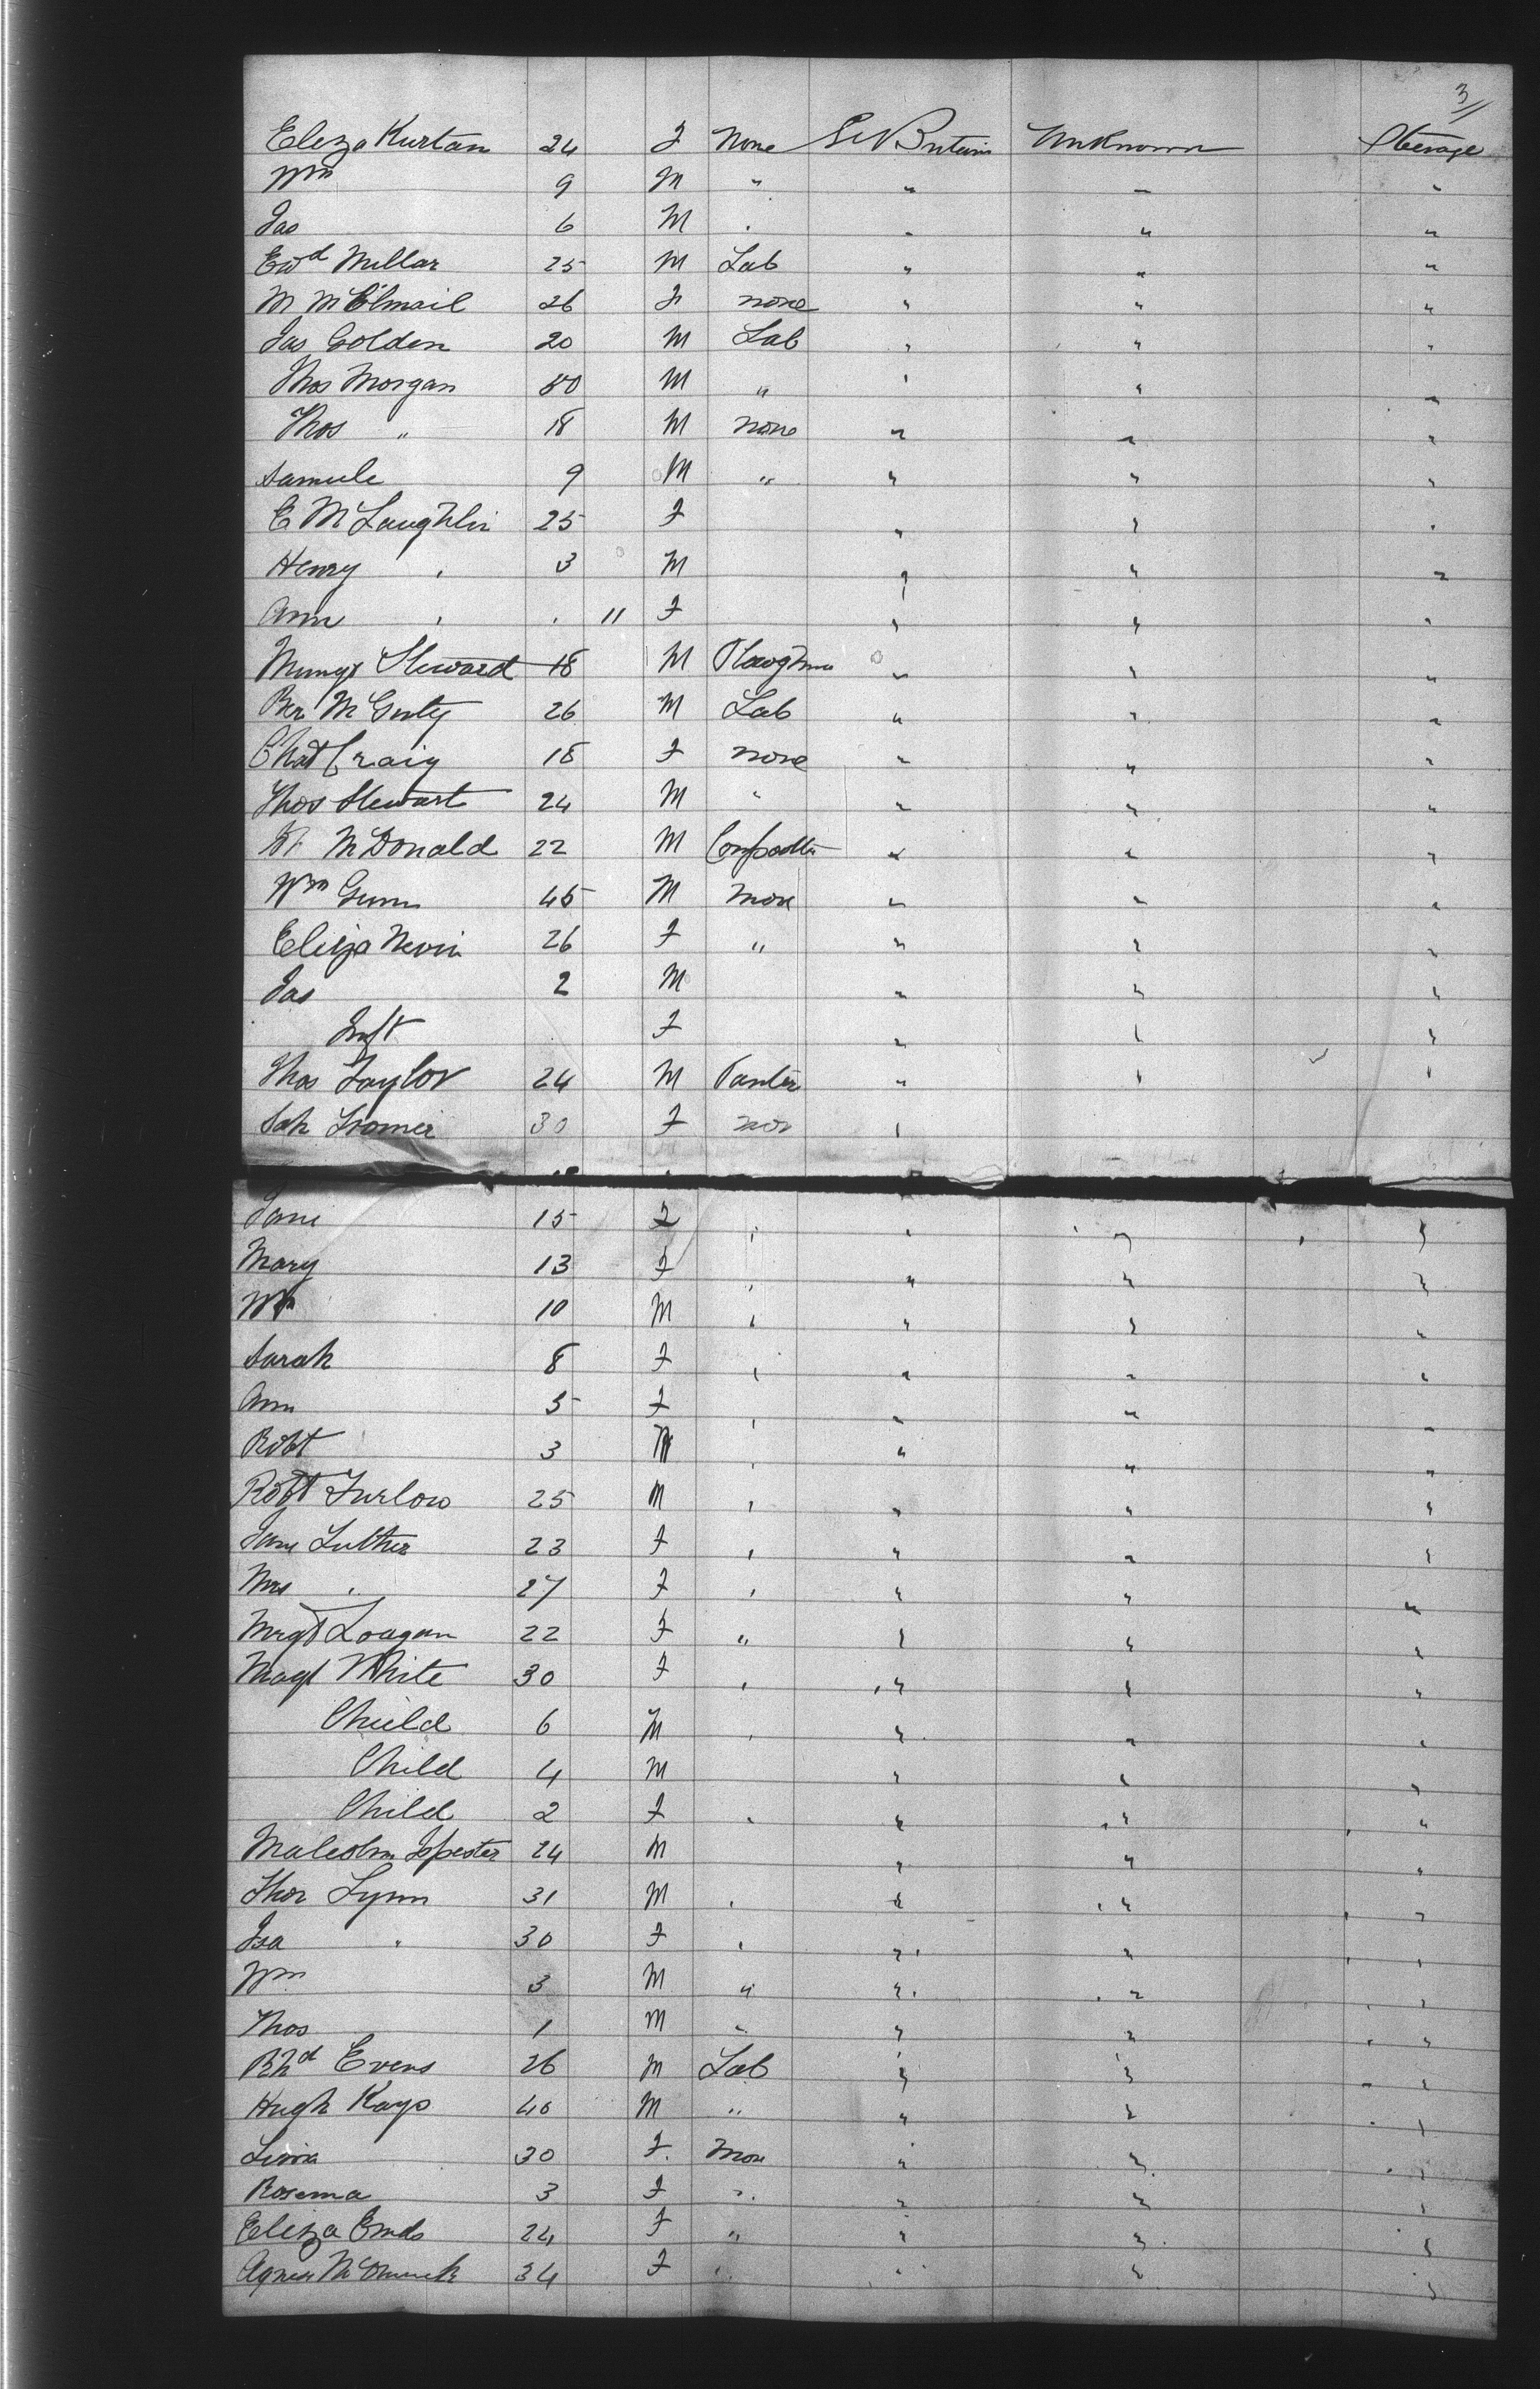 3
Eliza Kurtan 24 F None Gt Britain Unknown Steerage
Wm 9 M " " " "
Jas 6 M " " " "
Ewd Millar 25 M Lab " " "
M McElmail 26 F none " " "
Jas Golden 20 M Lab " " "
Thos Morgan 50 M " " " "
Thos " 18 M none " " "
Samule 9 M " " " "
E McLaughlin 25 F " " "
Henry " 3 M " " "
Ann " . 11 F " " "
Mungo Steward 18 M Ploughm " " "
Ber McGinty 26 M Lab " " "
Chat Craig 18 F none " " "
Thos Stewart 24 M " " " "
McDonald 22 M " " "
Wm Gunn 45 M None " " "
Eliza Nevin 26 F " " " "
Jas 2 M " " "
Inft F " " "
Thos Taylor 24 M Panter " " "
Sah 30 F non "
Jane 15 F " " " "
Mary 13 F " " " "
Wm 10 M " " " "
Sarah 8 F " " " "
Ann 5 F " " " "
Robt 3 M " " " "
Robt Furlow 25 M " " " "
Jane Luther 23 F " " " "
Mrs " 27 F " " " "
Mrgt Loagan 22 F " " " "
Magt White 30 F " " " "
Child 6 M " " " "
Child 4 M " " "
Child 2 F " " " "
Malcolm 24 M " " "
Thos Lynn 31 M " " " "
Isa " 30 F " " " "
Wm 3 M " " " "
Thos 1 M " " " "
Rhd Evens 26 M Lab " " "
Hugh Kays 40 M " " " "
30 F. Non " " "
Rosema 3 F " " " "
Eliza Emds 24 F " " " "
Agnes 34 F " " " "